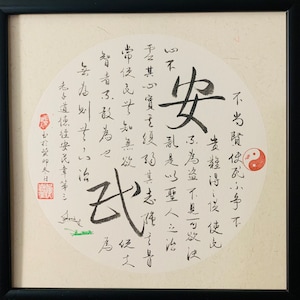 安民
不尚賢使民不爭不
貴難得之貨使民
不為盜不見可欲使
心不亂是以聖人之治
虛其心實其腹弱其志強其骨
常使民無知無欲使夫
智者不敢為也為
無為則無不治
老子道德經安民章第三